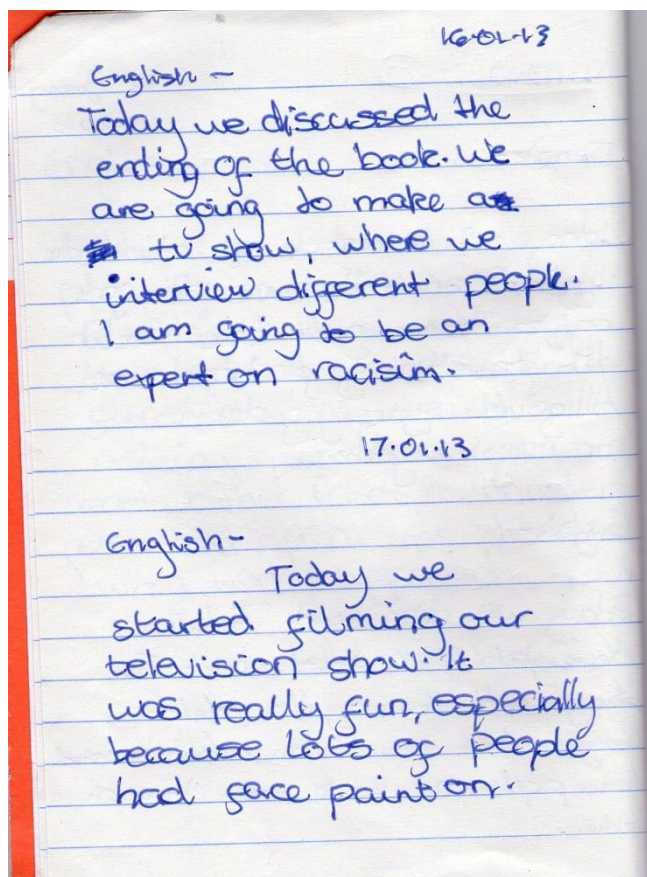 16.01.13
English -
Today we discussed the
ending of the book. We
are going to make a
tv show, where we
interview different people.
I am going to be an
expert on racisim.
17.01.13
English -
Today we
started filming our
television show. It
was really fun, especially
because lots of people
had face paint on.